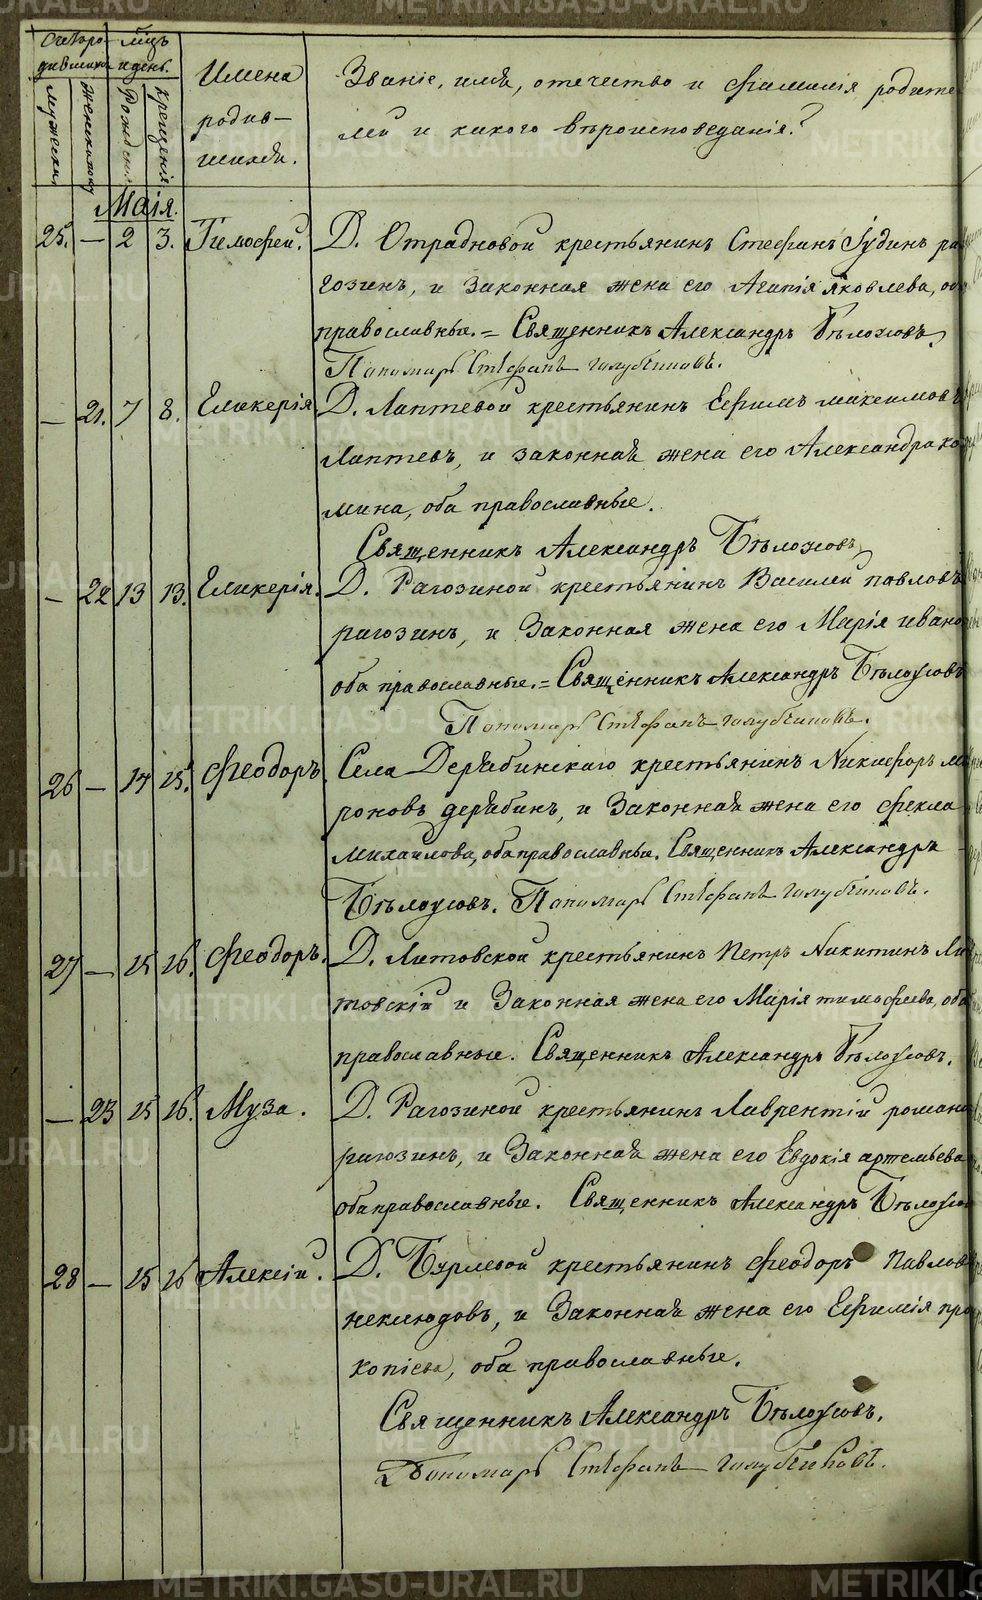 Счетъ ро- мѣцъ
дившихся и день.
мужеска
женскаго
Рожденія
крещенія
Имена
родив-
шихся.
Званіе, имя, отечество и фамилія родите
лей и какого вѣроисповеданія?
Маія.
25. — 2 3. Тимофей. Д. Отрадновой крестьянинъ Стефанъ Іудинъ ра
гозинъ, и законная жена его Агапія Яковлева, оба
православные. = Священникъ Александръ Бѣлоусовъ,
Пономарь Стефанъ Голубчиковъ.
— 21. 7 8. Гликерія Д. Лаптевой крестьянинъ Ефимъ максимовъ
Лаптевъ, и законная жена его Александра ко
мина, оба православные.
Священникъ Александръ Бѣлоусовъ,
— 22 13 13. Гликерія. Д. Рагозиной крестьянинъ Василей павловъ
рагозинъ, и Законная жена его Марія ивано
оба православные. = Священникъ Александръ Бѣлоусовъ
Пономарь Стефанъ Голубчиковъ.
26 — 14 15. Феодоръ Села Дерябинскаго крестьянинъ Никифоръ ми
роновъ дерябинъ, и Законная жена его Фекла
Михайлова, оба православные. Священникъ Александръ
Бѣлоусовъ. Пономарь Стефанъ Голубчиковъ.
27 — 15 16. Феодоръ. Д. Литовской крестьянинъ Петръ Никитинъ Ли
товскій и Законная жена его Марія тимофеева, оба
православные. Священникъ Александръ Бѣлоусовъ.
— 23 15 16. Муза. Д. Рагозиной крестьянинъ Лаврентій романо
рагозинъ, и Законная жена его Евдокія артемьева
оба православные. Священникъ Александръ Бѣлоусов
28 — 15 16 Алексій. Д. Бурлевой крестьянинъ Феодоръ Павлов
неклюдовъ, и Законная жена его Ефимія про
копіева, оба православные.
Священникъ Александръ Бѣлоусовъ.
Пономарь Стефанъ Голубчиковъ.
METRIKI.GASO-URAL.RU